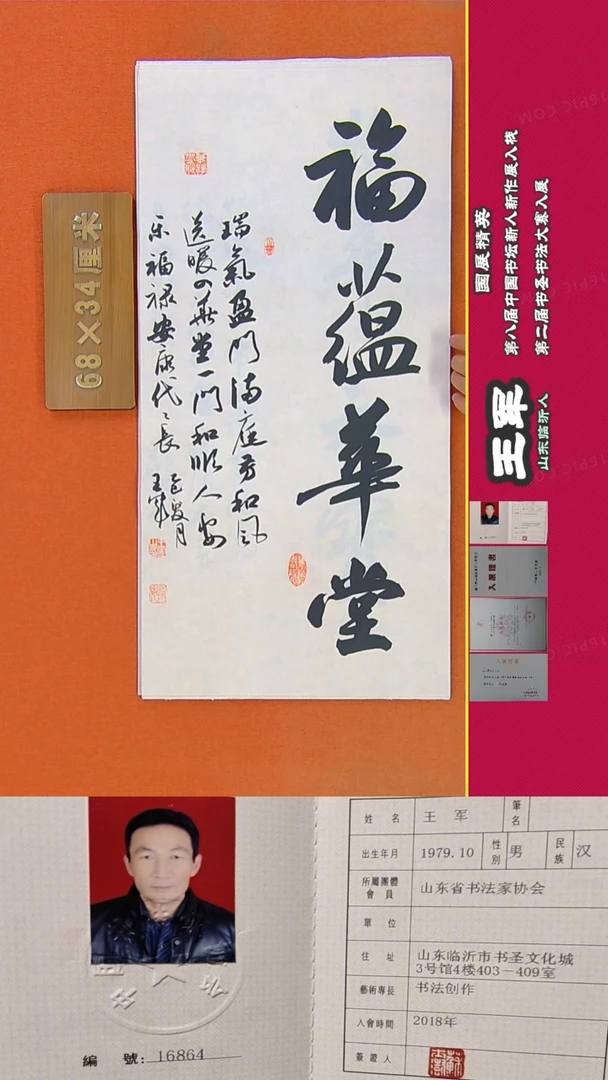 福
蘊
華
堂
瑞氣盈門满庭芳和風
送暖の華堂一門和順人安
乐福禄安康代〻長
乙巳夏月
王軍
68×34厘米
国展精英
第八届中国书坛新人新作展入展
第二届书圣书法大赛入展
王军
山东临沂人
入展證書
編 號: 16864
姓 名 王 军 筆名
出生年月 1979.10 性别 男 民族 汉
所屬團體會員 山东省书法家协会
單 位
住 址 山东临沂市书圣文化城
3号馆4楼403－409室
藝術專長 书法创作
入會時間 2018年
簽證人